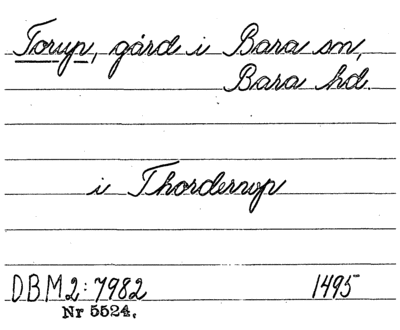 Torup, gård i Bara sn,
Bara hd.
i Thorderup
DBM2:7982 1495
Nr 5524.